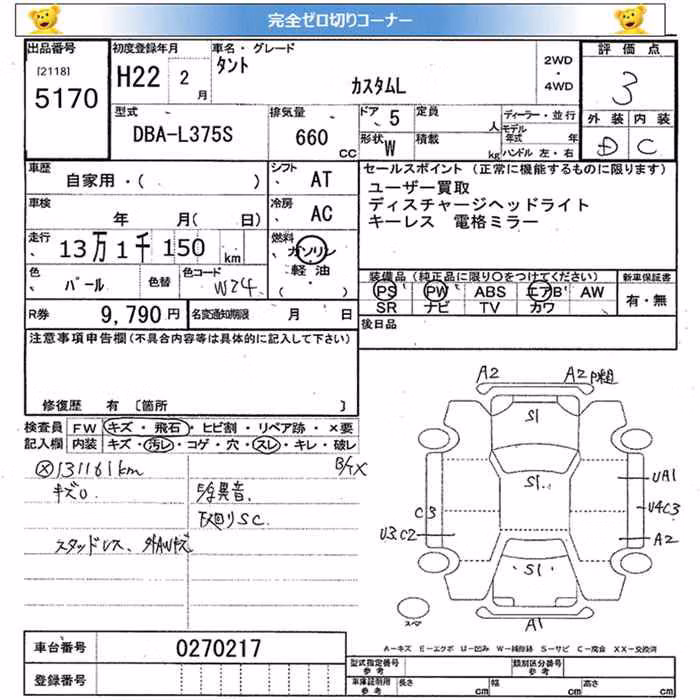 完全ゼロ切りコーナー
出品番号 初度登録年月 車名・グレード 評価点
[2118] H22 2 月 タント カスタムL 2WD ・ 4WD 3
5170
型式 排気量 ドア 5 定員 人 ディーラー・並行 外装 内装
DBA-L375S 660 CC 形状 W 積載 kg モデル年式 年 ハンドル 左・右 D C
車歴 シフト セールスポイント (正常に機能するものに限ります)
自家用・( ) AT ユーザー買取
車検 冷房 ディスチャージヘッドライト
年 月( 日) AC キーレス 電格ミラー
走行 燃料
13万1千150 km ガソリン・軽油 ( )
装備品(純正品に限り〇をつけてください) 新車保証書
色 パール 色替 色コード W24 PS PW ABS エアB AW 有・無
SR ナビ TV カワ
R券 9,790 円 名変通知期限 月 日 後日品
注意事項申告欄(不具合内容等は具体的に記入して下さい)
修復歴 有 [箇所 ]
検査員 FW キズ・飛石・ヒビ割・リペア跡・×要
記入欄 内装 キズ・汚レ・コゲ・穴・スレ・キレ・破レ
131161km
キズ 異音
下廻りSC
スタッドレス、外AWキズ
A2 A2
S1
S1
UA1
C3 U4C3
U3C2 A2
S1
スペア A1
A-キズ E-エクボ U-凹み W-補修跡 S-サビ C-腐食 XX-交換済
車台番号 0270217
登録番号
型式指定番号 参考 類別区分番号 参考
車庫証明用 参考 長さ cm 幅 cm 高さ cm